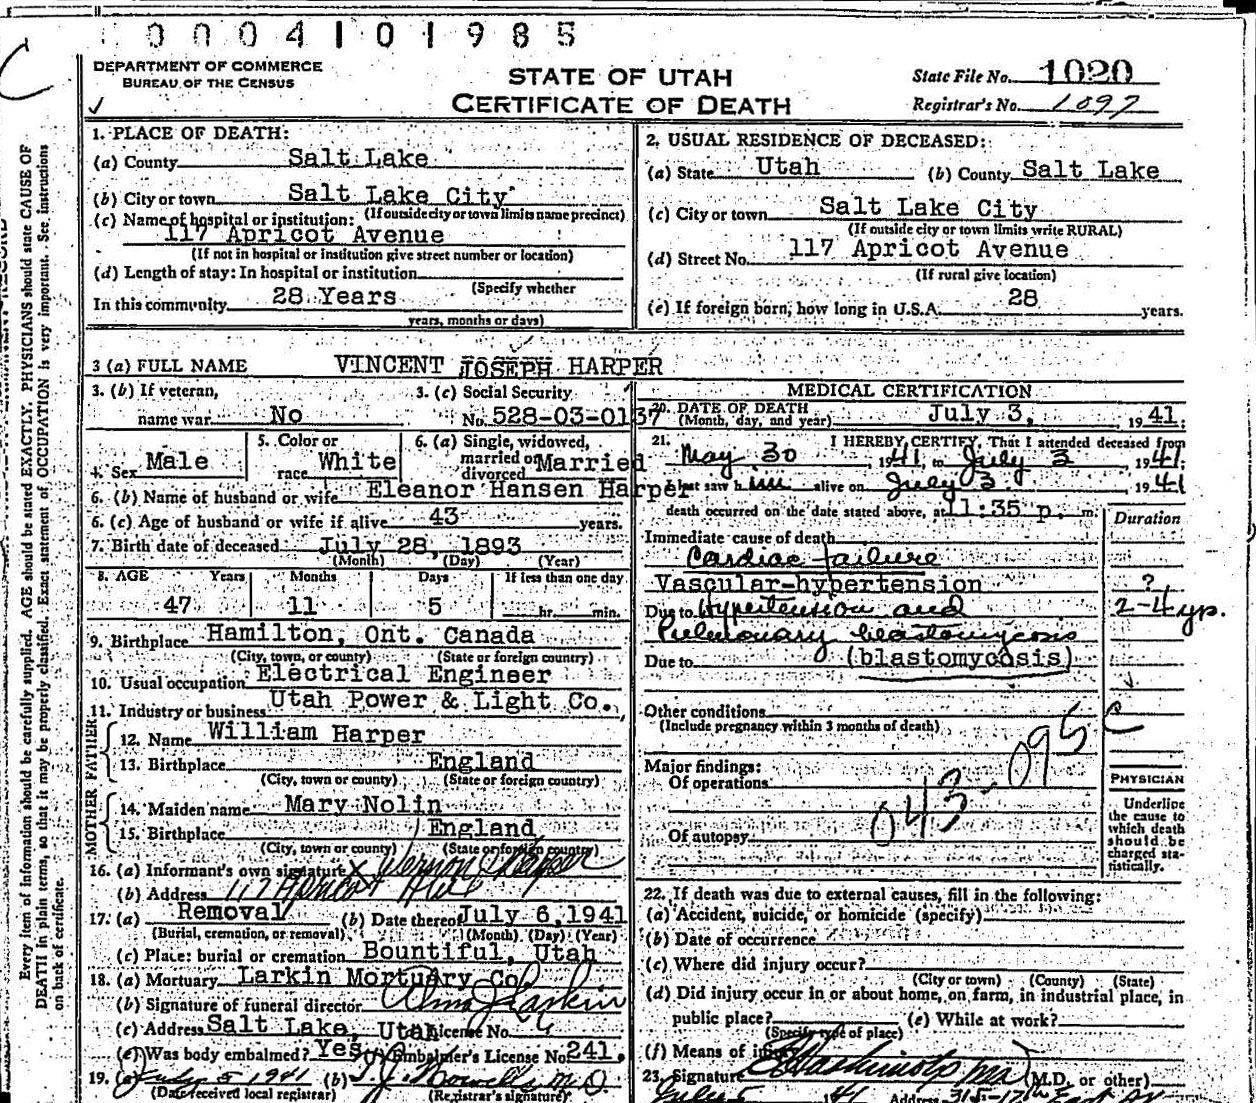 0004101985
DEPARTMENT OF COMMERCE
BUREAU OF THE CENSUS
STATE OF UTAH
CERTIFICATE OF DEATH
State File No. 1020
Registrar's No. 1097
Every item of information should be carefully supplied. AGE should be stated EXACTLY. PHYSICIANS should state CAUSE OF
DEATH in plain terms, so that it may be properly classified. Exact statement of OCCUPATION is very important. See instructions
on back of certificate.
1. PLACE OF DEATH:
(a) County Salt Lake
(b) City or town Salt Lake City
(If outside city or town limits name precinct)
(c) Name of hospital or institution:
117 Apricot Avenue
(If not in hospital or institution give street number or location)
(d) Length of stay: In hospital or institution
(Specify whether
In this community 28 Years
years, months or days)
2. USUAL RESIDENCE OF DECEASED:
(a) State Utah (b) County Salt Lake
(c) City or town Salt Lake City
(If outside city or town limits write RURAL)
(d) Street No. 117 Apricot Avenue
(If rural give location)
(e) If foreign born, how long in U.S.A. 28 years.
3 (a) FULL NAME VINCENT JOSEPH HARPER
3. (b) If veteran, name war No
3. (c) Social Security No. 528-03-0137
4. Sex Male
5. Color or race White
6. (a) Single, widowed, married or divorced Married
6. (b) Name of husband or wife Eleanor Hansen Harper
6. (c) Age of husband or wife if alive 43 years.
7. Birth date of deceased July 28, 1893
(Month) (Day) (Year)
8. AGE Years Months Days If less than one day
47 11 5 hr. min.
9. Birthplace Hamilton, Ont. Canada
(City, town, or county) (State or foreign country)
10. Usual occupation Electrical Engineer
11. Industry or business Utah Power & Light Co.
FATHER
12. Name William Harper
13. Birthplace England
(City, town or county) (State or foreign country)
MOTHER
14. Maiden name Mary Nolin
15. Birthplace England
(City, town, or county) (State or foreign country)
16. (a) Informant's own signature X Vernon Harper
(b) Address 117 Apricot Ave
17. (a) Removal (b) Date thereof July 6, 1941
(Burial, cremation, or removal) (Month) (Day) (Year)
(c) Place: burial or cremation Bountiful, Utah
18. (a) Mortuary Larkin Mortuary Co
(b) Signature of funeral director Alma J Larkin
(c) Address Salt Lake, Utah License No. 4
(d) Was body embalmed? Yes Embalmer's License No. 241.
19. (a) July 5 1941 (b) T. J. Howells M.D.
(Date received local registrar) (Registrar's signature)
MEDICAL CERTIFICATION
20. DATE OF DEATH July 3, 1941
(Month, day, and year)
21. I HEREBY CERTIFY, That I attended deceased from
May 30, 1941, to July 3 1941;
I last saw him alive on July 3 1941
death occurred on the date stated above, at 11:35 p. m.
Duration
Immediate cause of death
Cardiac failure
Vascular-hypertension ?
Due to Hypertension and 2-4 yr.
Pulmonary blastomycosis
Due to (blastomycosis)
Other conditions
(Include pregnancy within 3 months of death)
Major findings:
Of operations
Of autopsy
043-095 C
PHYSICIAN
Underline
the cause to
which death
should be
charged sta-
tistically.
22. If death was due to external causes, fill in the following:
(a) Accident, suicide, or homicide (specify)
(b) Date of occurrence
(c) Where did injury occur?
(City or town) (County) (State)
(d) Did injury occur in or about home, on farm, in industrial place, in
public place? (e) While at work?
(Specify type of place)
(f) Means of injury
23. Signature (M.D. or other)
July 5 1941 Address 315-17th East